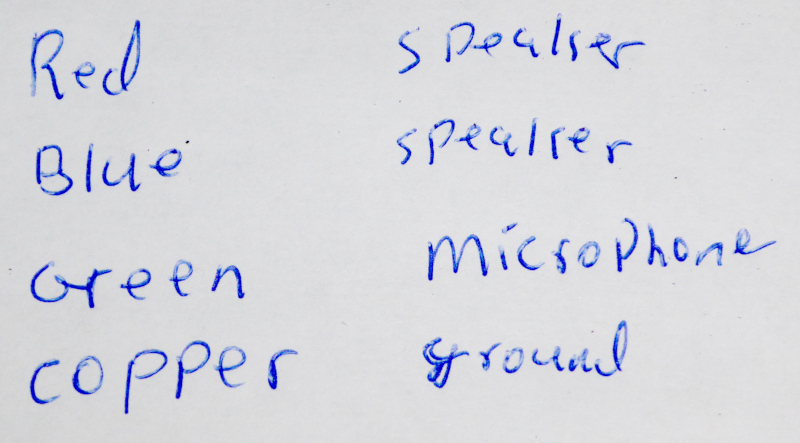 Red speaker
Blue speaker
Green Microphone
copper ground